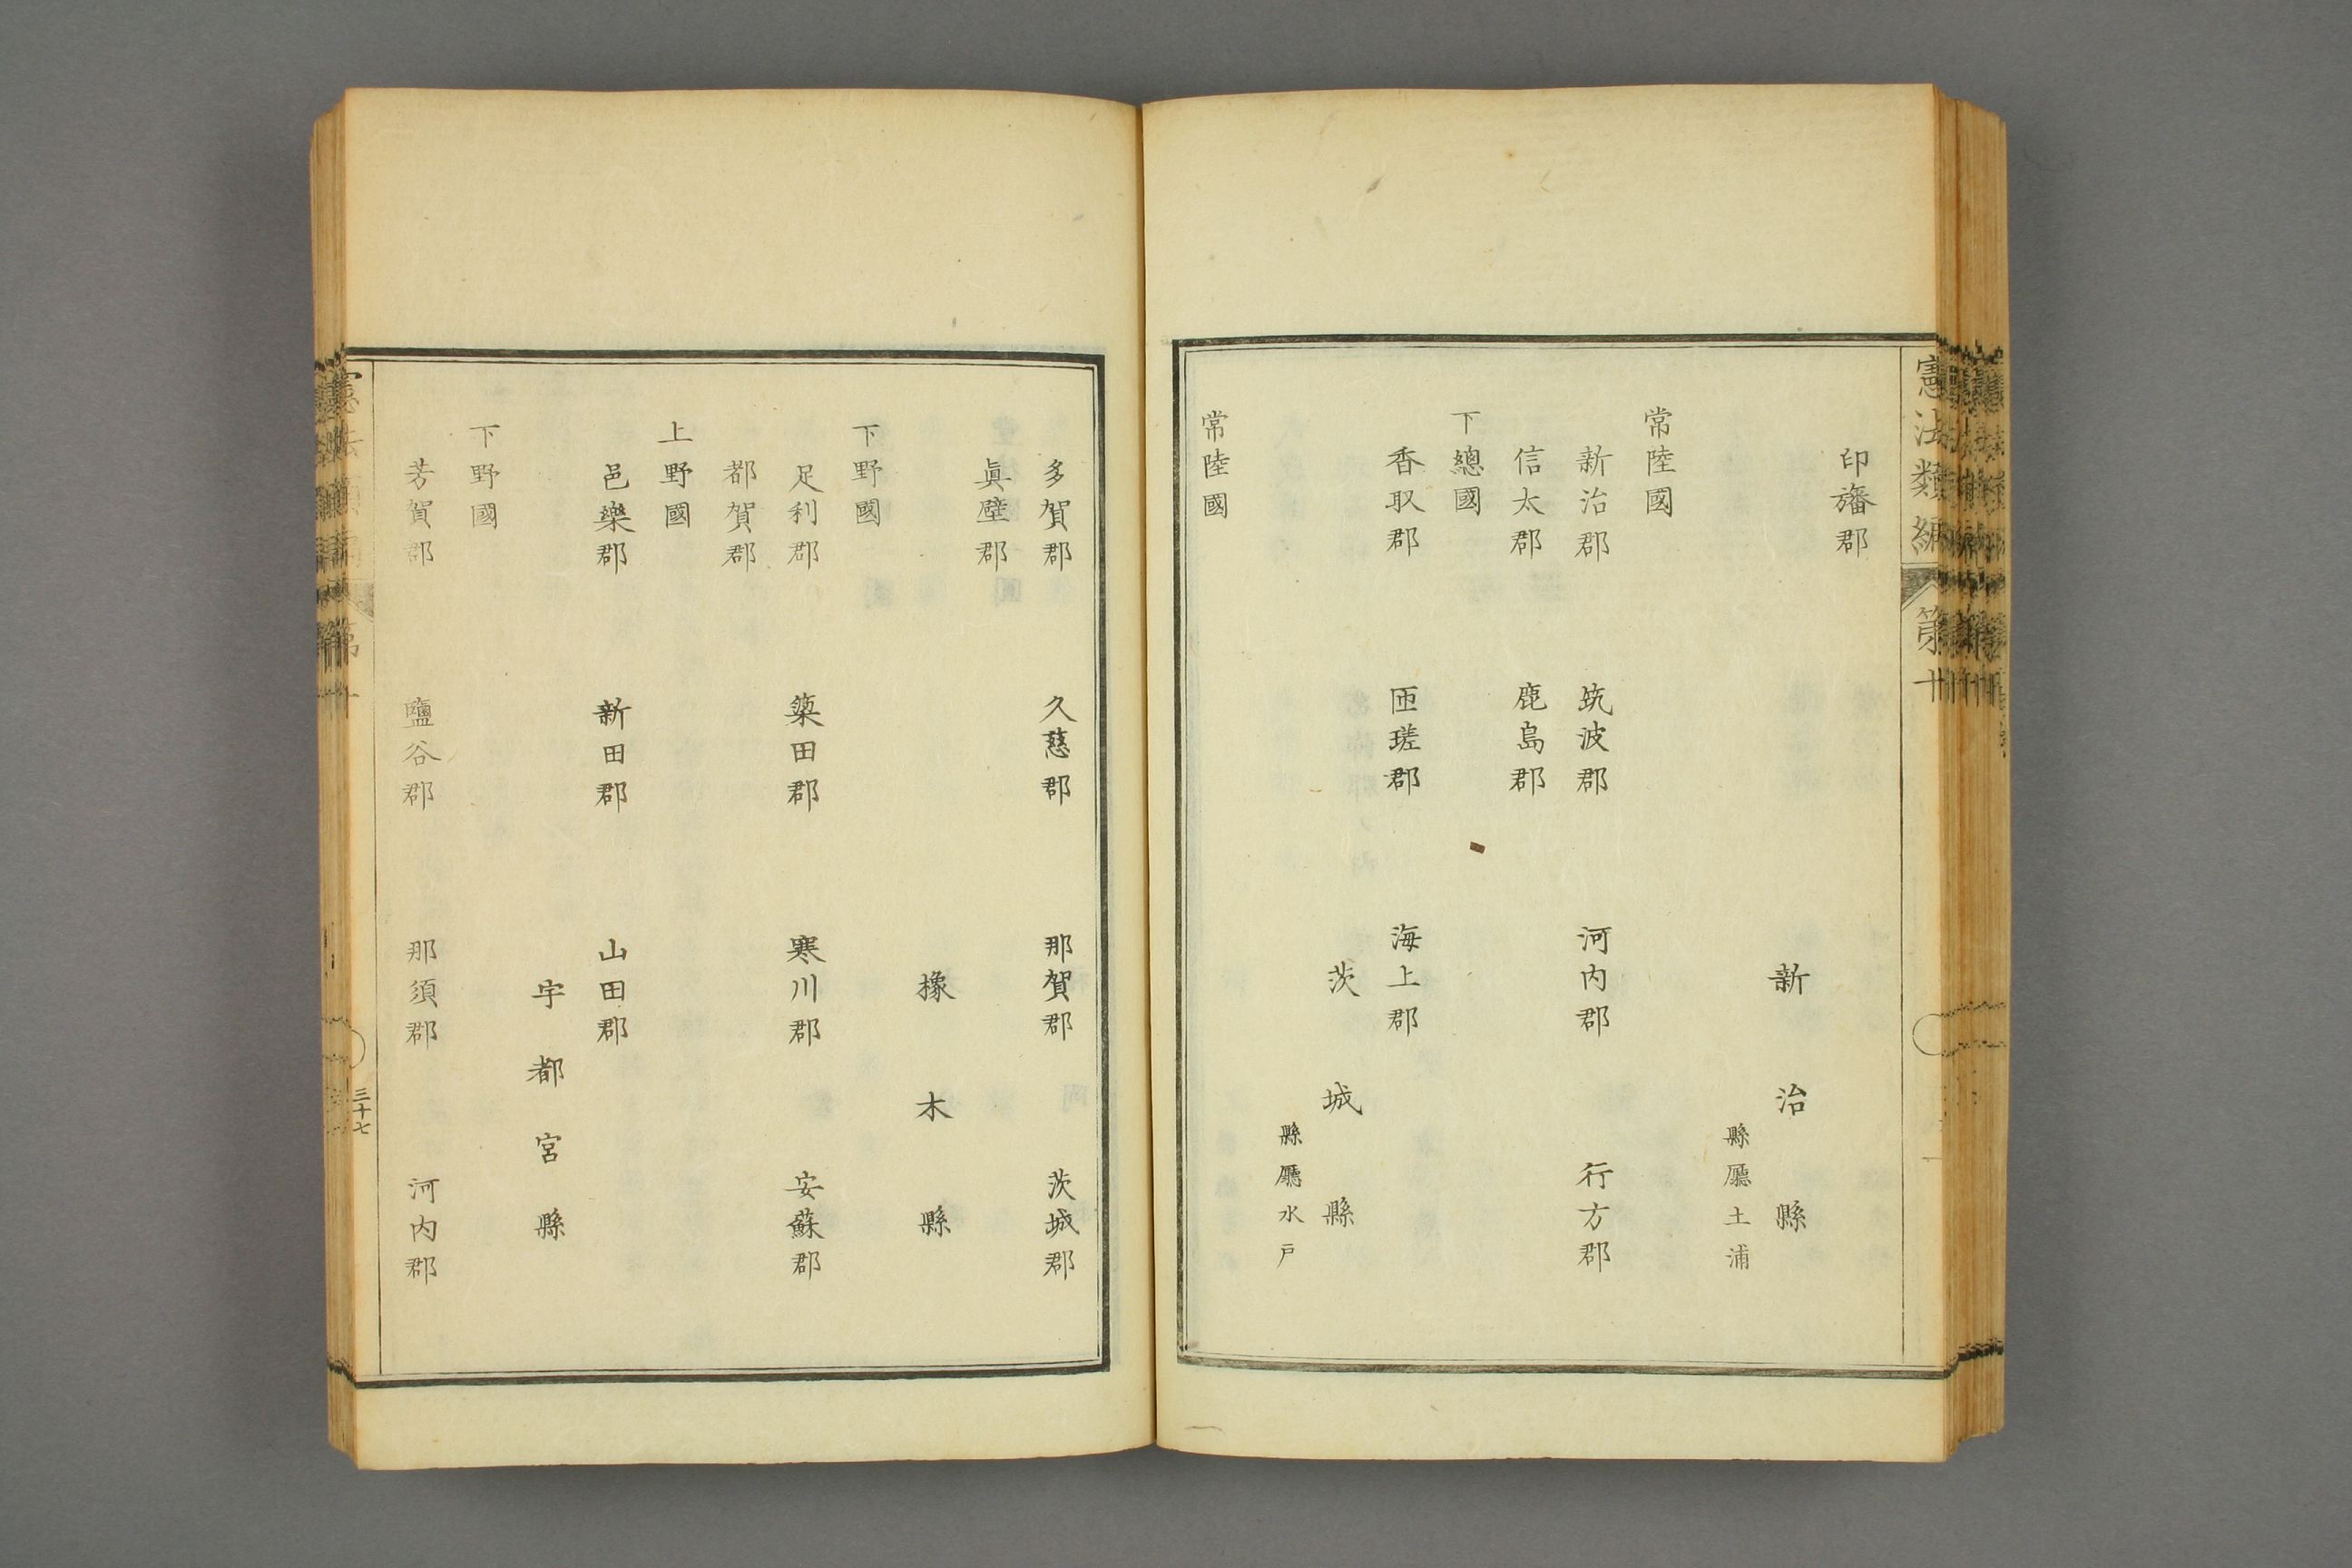 憲法類編 第十
印旛郡
新治縣
縣廳土浦
常陸國
新治郡 筑波郡 河内郡 行方郡
信太郡 鹿島郡
下總國
香取郡 匝瑳郡 海上郡
茨城縣
縣廳水戸
常陸國
多賀郡 久慈郡 那賀郡 茨城郡
眞壁郡
橡木縣
下野國
足利郡 簗田郡 寒川郡 安蘇郡
都賀郡
上野國
邑樂郡 新田郡 山田郡
宇都宮縣
下野國
芳賀郡 鹽谷郡 那須郡 河内郡
三十七